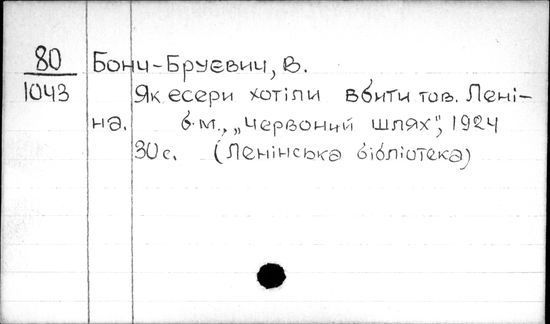 80
1043
Бонч-Бруєвич, В.
Як есери хотіли вбити тов. Лені-
на. б.м., „Червоний шлях", 1924
30 с. (Ленінська бібліотека)